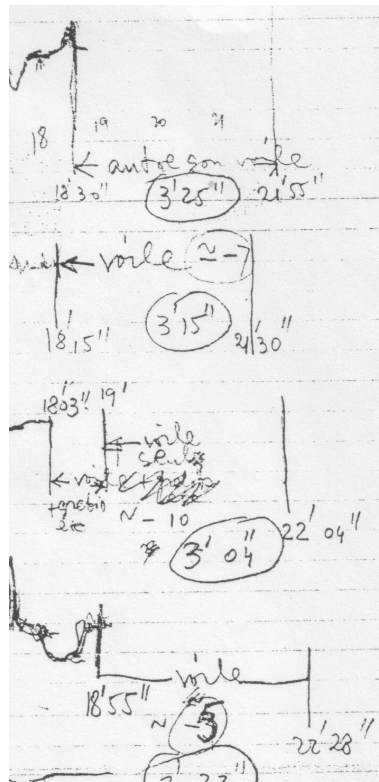 18 19 20 21
← autre son voile
18'30" 3'25" 21'55"
← voile ≈ -7
3'15"
18'15" 21'30"
18'03" 19'
← voile
seul
← voile +
~ - 10
3'04" 22'04"
voile
18'55" ~ -5 22'28"